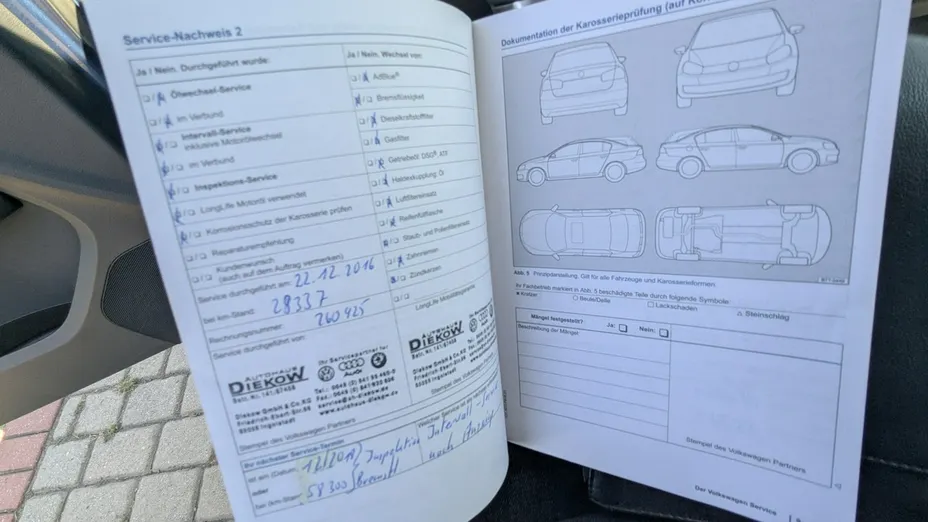 Service-Nachweis 2
Ja / Nein. Durchgeführt wurde:
Ölwechsel-Service
im Verbund
Intervall-Service
inklusive Motorölwechsel
im Verbund
Inspektions-Service
LongLife Motoröl verwendet
Korrosionsschutz der Karosserie prüfen
Reparaturempfehlung
Kundenwunsch
(auch auf dem Auftrag vermerken)
Service durchgeführt am: 22.12.2016
bei km-Stand: 28337
Rechnungsnummer: 260425
Service durchgeführt von:
AUTOHAUS
DIEKOW
Betr. Nr. 141/67458
Ihr Servicepartner für
Audi
Diekow GmbH & Co.KG
Friedrich-Ebert-Str.
Ingolstadt
service@ah-diekow.de
www.autohaus-diekow.de
Stempel des Volkswagen Partners
Ihr nächster Service-Termin
ist am (Datum)
oder
bei (km-Stand) 58300
Inspektion
Intervall
nach Anzeige
Ja / Nein. Wechsel von:
AdBlue®
Bremsflüssigkeit
Dieselkraftstofffilter
Gasfilter
Getriebeöl: DSG®, ATF
Haldexkupplung Öl
Luftfiltereinsatz
Reifenfüllflasche
Staub- und Pollenfiltereinsatz
Zahnriemen
Zündkerzen
LongLife Mobilitätsgarantie
AUTOHAUS
DIEKOW
Betr. Nr. 141/67458
Diekow GmbH & Co.KG
Friedrich-Ebert-Str.
Ingolstadt
Stempel des Volkswagen
Dokumentation der Karosserieprüfung (auf
Abb. 5 Prinzipdarstellung. Gilt für alle Fahrzeuge und Karosserieformen.
Ihr Fachbetrieb markiert in Abb. 5 beschädigte Teile durch folgende Symbole:
Kratzer
Beule/Delle
Lackschaden
Steinschlag
Mängel festgestellt? Ja: Nein:
Beschreibung der Mängel
Stempel des Volkswagen Partners
Der Volkswagen Service